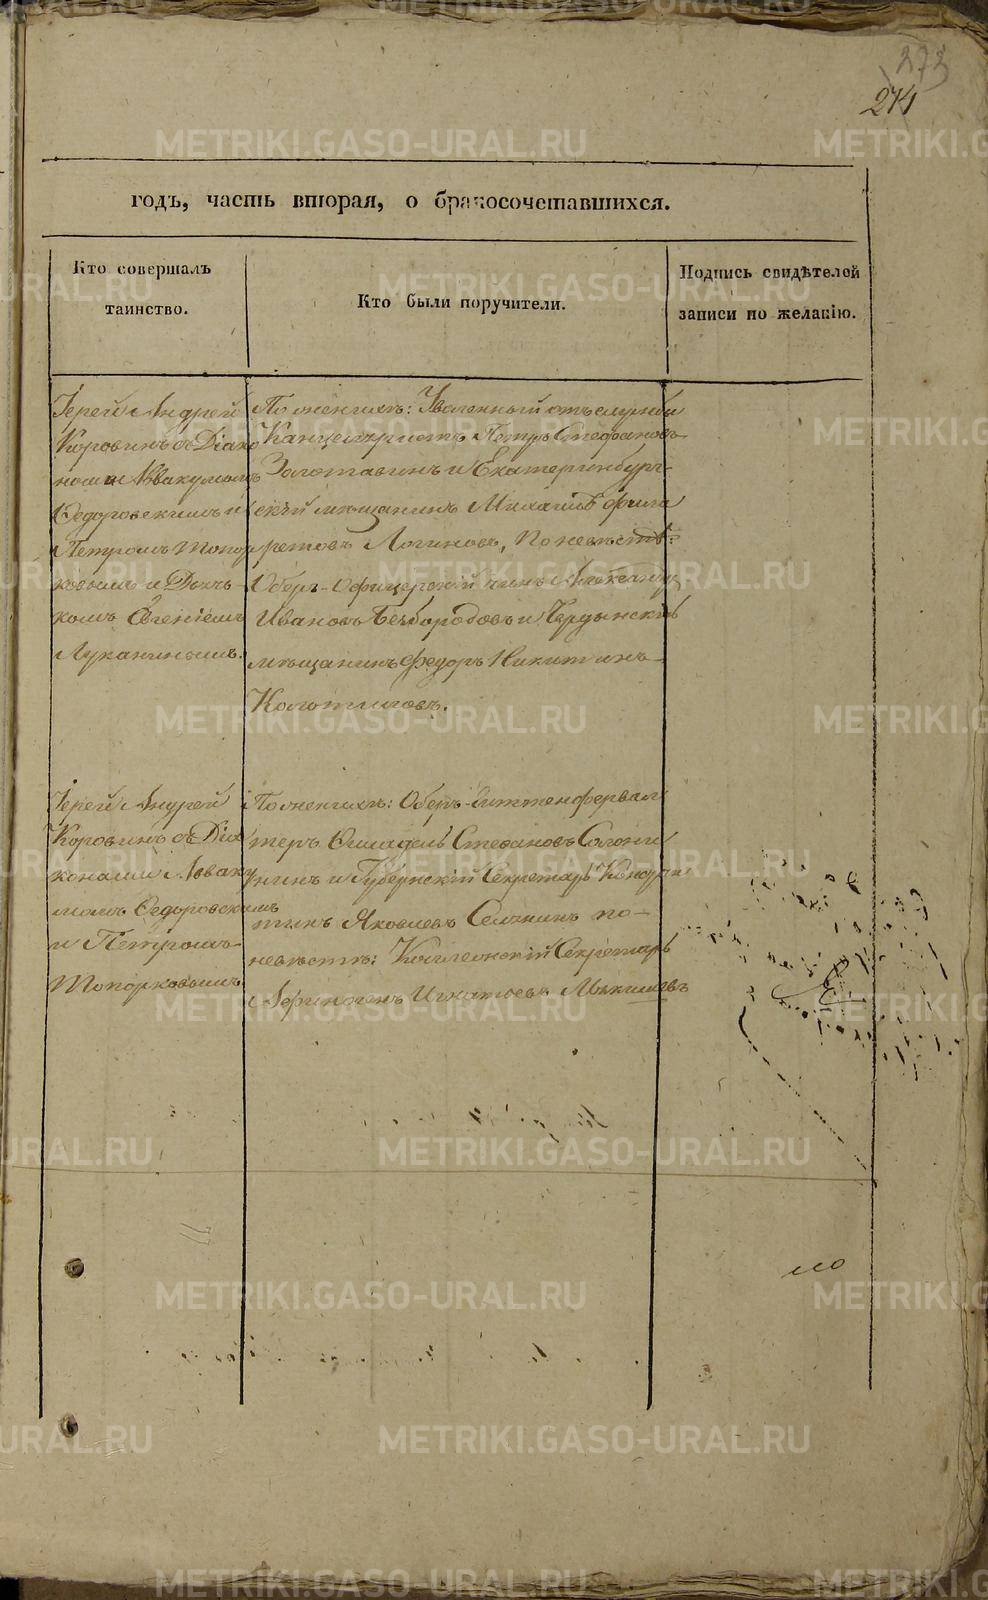 273
274
годъ, часть вторая, о бракосочетавшихся.
Кто совершалъ
таинство.
Кто были поручители.
Подпись свидѣтелей
записи по желанію.
Іерей Андрей
Коровинъ съ Діако
номъ Аввакумомъ
Ѳедоровскимъ и
Петромъ Топор
ковымъ и Дьяч-
комъ Евгеніемъ
Луканинымъ.
По женихѣ: Уволенный отъ службы
Канцеляристъ Петръ Стефановъ
Золотавинъ и Екатеринбург-
скій мѣщанинъ Михаилъ Фила
ретовъ Логиновъ, по невѣстѣ:
Оберъ-Офицерскій сынъ Александръ
Ивановъ Безбородовъ и Чердынскій
мѣщанинъ Федоръ Никитинъ
Колотиловъ.
Іерей Андрей
Коровинъ съ Діа
конами Авваку
момъ Ѳедоровскимъ
и Петромъ
Топорковымъ
По женихѣ: Оберъ-гиттенфервал
теръ Стефановъ
и Губернскій Секретарь
Яковлевъ по
невѣстѣ: Коллежскій Секретарь
Игнатьевъ
METRIKI.GASO-URAL.RU